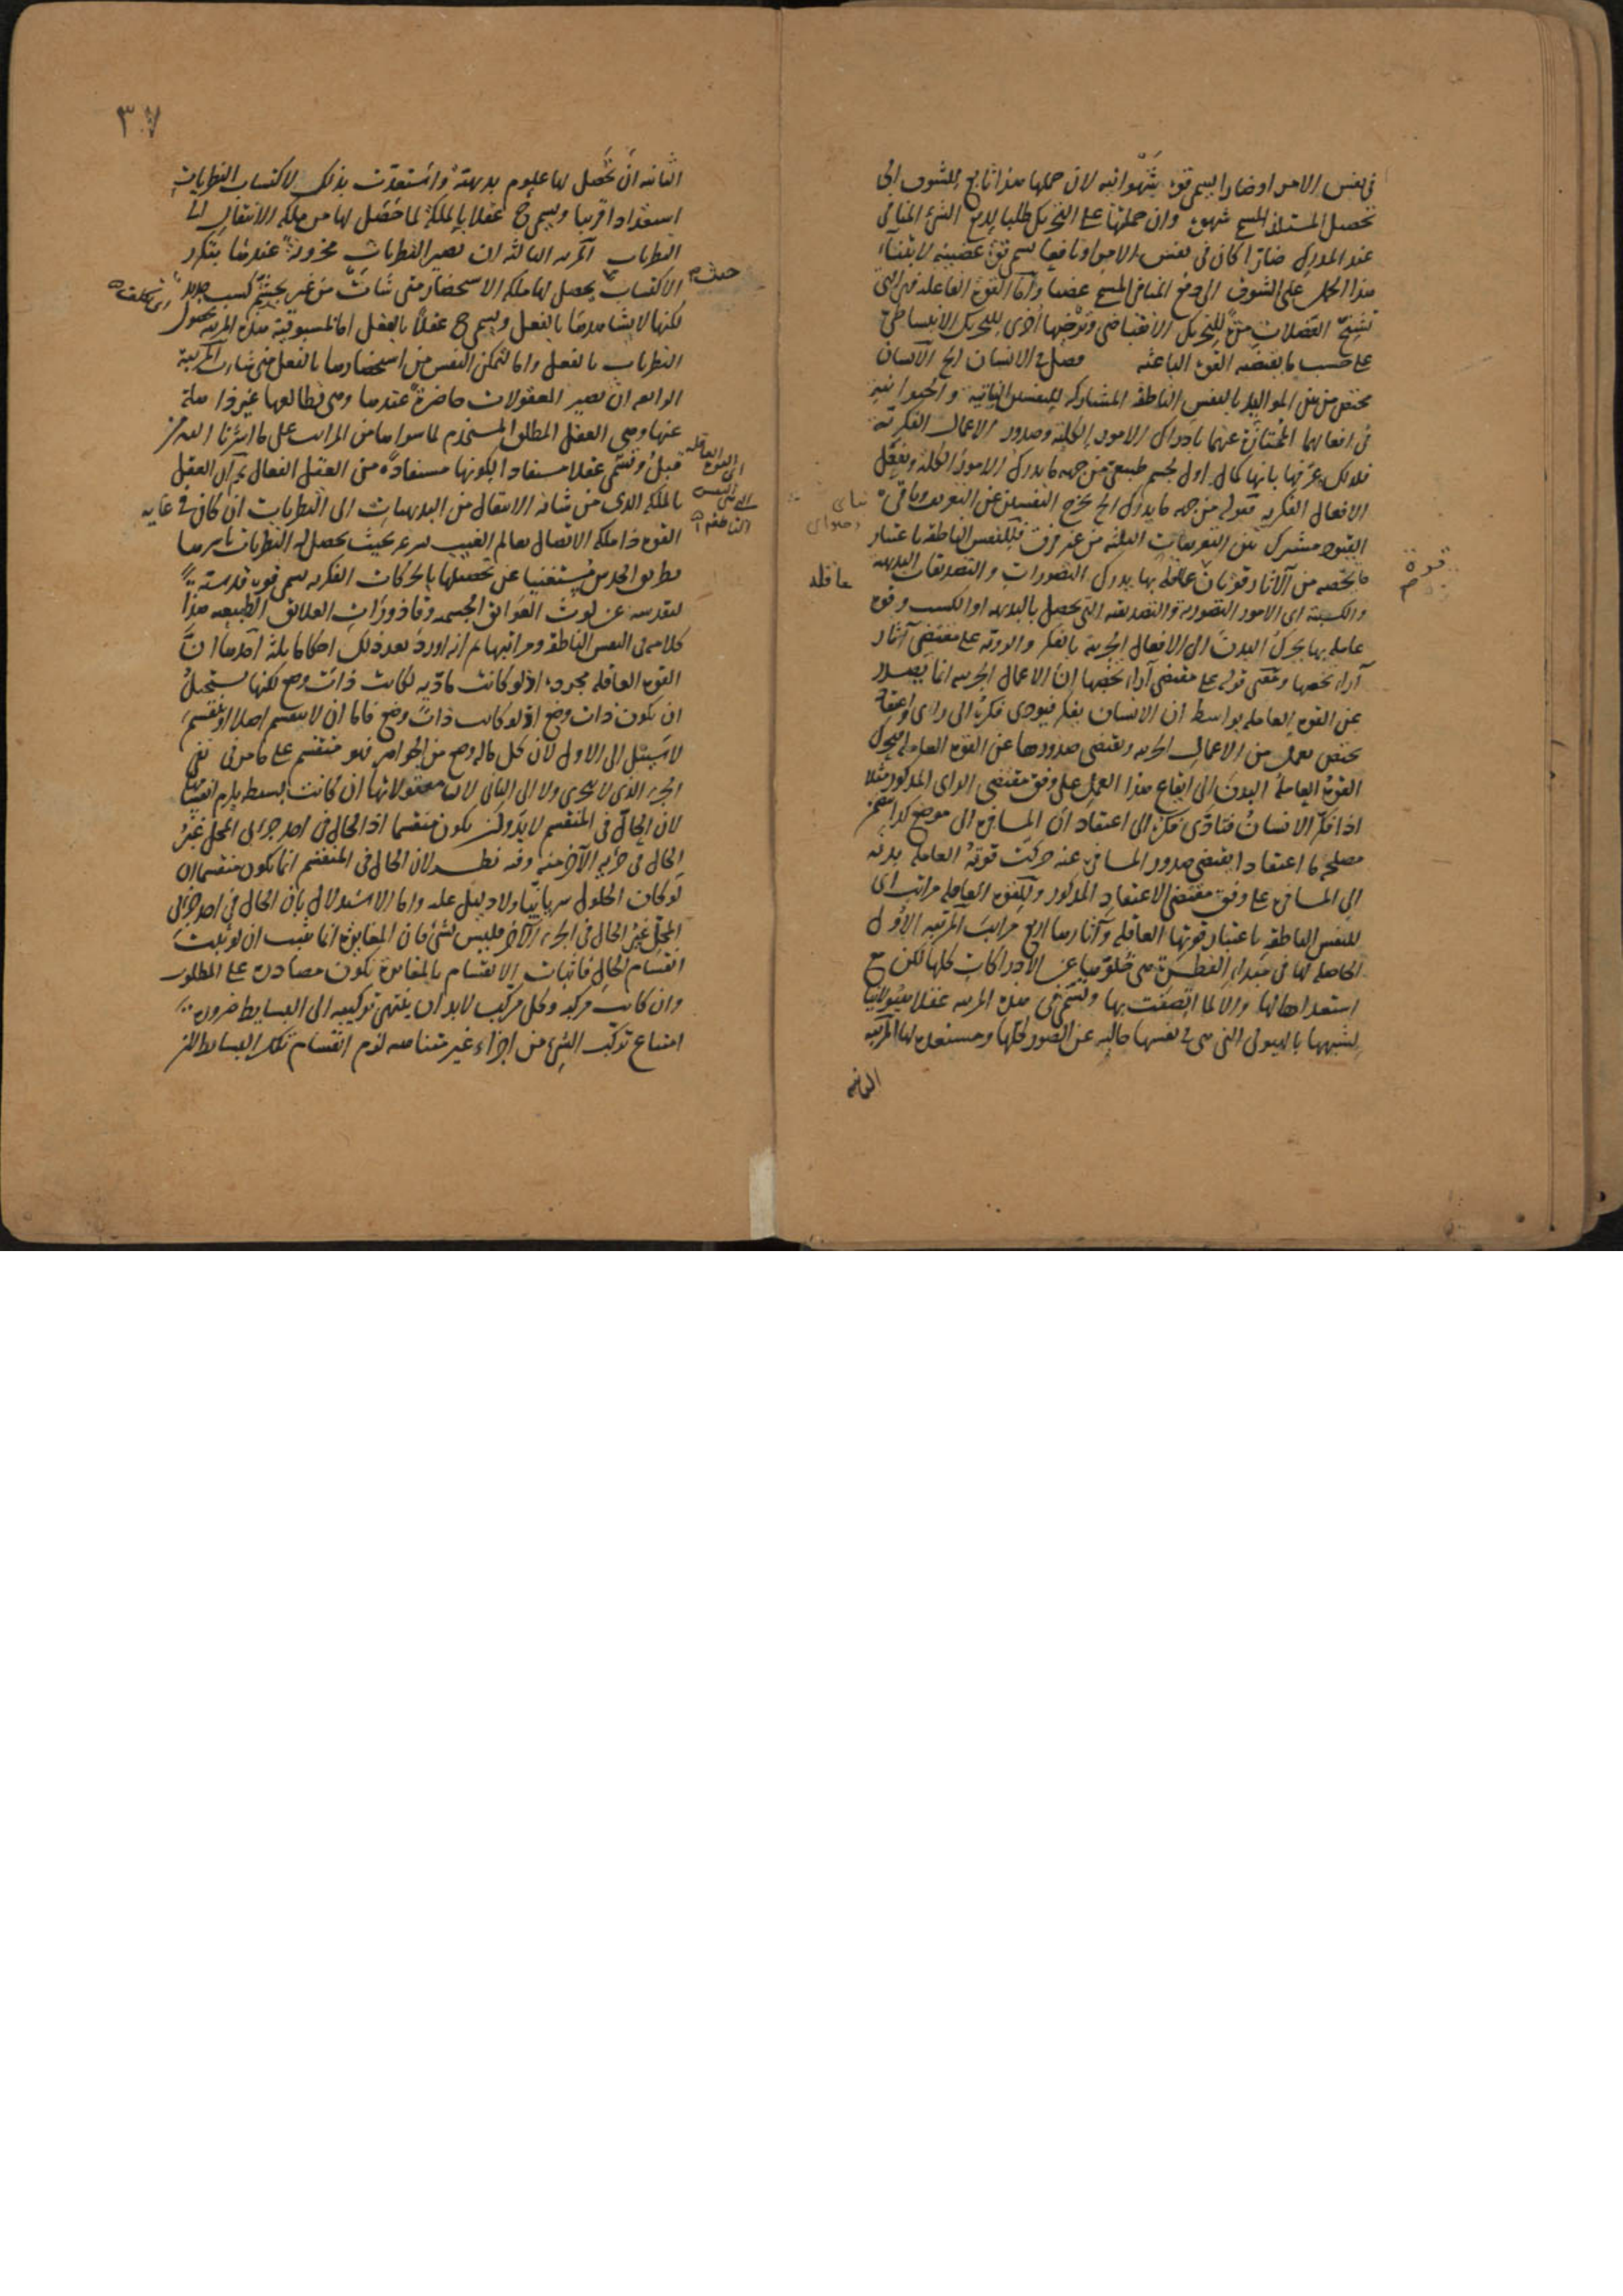 في نفس الامر او ضارا يسمى قوة شهوانية لان حملها هذا تابع للشوق الى
تحصيل المستلذ المسمى شهوة وان حملتها على التحريك طلبا لدفع الشئ المنافي
عند المدرك ضارا كان في نفس الامر او نافعا يسمى قوة غضبية لابتناء
هذا الحمل على الشوق الى دفع المنافي المسمى غضبا وأما القوة الفاعلة فهي التي
تشنج العضلات مرة للتحريك الانقباضي وترخيها اخرى للتحريك الانبساطي
على حسب ما يقتضيه القوة الباعثة فصل في الانسان الخ الانسان
مختص من بين المواليد بالنفس الناطقة المشاركة للنفسين النباتية والحيوانية
في افعالهما الممتازة عنهما بادراك الامور الكلية وصدور الاعمال الفكرية
فلذلك عرفها بانها كمال اول لجسم طبيعي من جهة ما يدرك الامور الكلية ويفعل
الافعال الفكرية فقوله من جهة ما يدرك الخ يخرج النفسين عن التعريف وباقي
القيود مشترك بين التعريفات الثلثة من غير فرق فللنفس الناطقة باعتبار
ما يخصه من الآثار قوتان عاقلة بها يدرك التصورات والتصديقات البديهية
والكسبية اى الامور التصورية والتصديقية التي تحصل بالبديهة او الكسب وقوة
عاملة بها يحرك البدن الى الافعال الجزئية بالفكر والروية على مقتضى آراء
آراء تخصها ومعنى قوله على مقتضى آراء تخصها ان الاعمال الجزئية انما يصدر
عن القوة العاملة بواسطة ان الانسان يفكر فيودى فكره الى راى واعتقاد
يختص بعمل من الاعمال الجزئية ويقتضى صدورها عن القوة العاملة فيحرك
القوة العاملة البدن الى ايقاع هذا العمل على وفق مقتضى الراى المذكور مثلا
اذا فكر الانسان فتادى فكره الى اعتقاد ان المسافرة الى موضع كذا يتضمن
مصلحة ما اعتقادا يقتضى صدور المسافرة عنه حركت قوته العاملة بدنه
الى المسافرة على وفق مقتضى الاعتقاد المذكور وللقوة العاقلة مراتب اى
للنفس الناطقة باعتبار قوتها العاقلة وآثارها اربع مراتب المرتبة الاولى
الحاصلة لها في مبداء الفطرة هى خلوها عن الادراكات كلها لكن مع
استعدادها لها والا لما اتصفت بها وتسمى في هذه المرتبة عقلا هيولانيا
لشبهها بالهيولى التي هى في نفسها خالية عن الصور كلها ومستعدة لها المرتبة
الثانية
نباتى
وحيوانى
عاقلة
قوة
٣٠٧
الثانية ان تحصل لها علوم بديهية واستعدت بذلك لاكتساب النظريات
استعدادا قريبا ويسمى ح عقلا بالملكة لما حصل لها من ملكة الانتقال الى
النظريات المرتبة الثالثة ان تصير النظريات مخزونة عندها بتكرر
الاكتساب بحيث يحصل لها ملكة الاستحضار متى شاءت من غير تجشم كسب جديد
لكنها لا يشاهدها بالفعل ويسمى ح عقلا بالفعل اما لمسبوقية هذه المرتبة بحصول
النظريات بالفعل واما لتمكن النفس من استحضارها بالفعل متى شاءت المرتبة
الرابعة ان تصير المعقولات حاضرة عندها وهى تطالعها غير ذاهلة
عنها وهى العقل المطلق المستخدم لما سواها من المراتب على ما اشرنا اليه من
قبل وتسمى عقلا مستفادا لكونها مستفادة من العقل الفعال ثم ان العقل
بالملكة الذى من شانه الانتقال من البديهيات الى النظريات ان كان في غاية
القوة ذا ملكة الاتصال بعالم الغيب سرعة بحيث يحصل له النظريات باسرها
بطريق الحدس مستغنيا عن تحصيلها بالحركات الفكرية يسمى قوة قدسية
لتقدسه عن لوث العوائق الجسمية وقاذورات العلائق الطبيعية هذا
كلامه في النفس الناطقة ومراتبها ثم انه اورد بعد ذلك احكاما ثلثة احدها ان
القوة العاقلة مجردة اذ لو كانت مادية لكانت ذات وضع لكنها يستحيل
ان يكون ذات وضع اذ لو كانت ذات وضع فاما ان لا ينقسم اصلا او ينقسم
لا سبيل الى الاول لان كل ما له وضع من الجواهر فهو منقسم على ما مر في نفى
الجزء الذى لا يتجزى ولا الى الثانى لان معقولاتها ان كانت بسيطة يلزم انقسامها
لان الحال في المنقسم لابد وان يكون منقسما اذ الحال في احد جزئى المحل غير
الحال في جزئه الآخر منه وفيه نظر لان الحال في المنقسم انما يكون منقسما ان
لو كان الحلول سريانيا ولا دليل عليه واما الاستدلال بان الحال في احد جزئى
المحل غير الحال في الجزء الآخر فليس بشئ فان المغايرة انما تثبت ان لو ثبت
انقسام الحال فاثبات الانقسام بالمغايرة يكون مصادرة على المطلوب
وان كانت مركبة وكل مركب لابد ان ينتهى تركيبه الى البسايط ضرورة
امتناع تركب الشئ من اجزاء غير متناهية لزم انقسام تلك البسايط
حيث
اى تكلف
اى القوة العاقلة
النفس
الناطقة